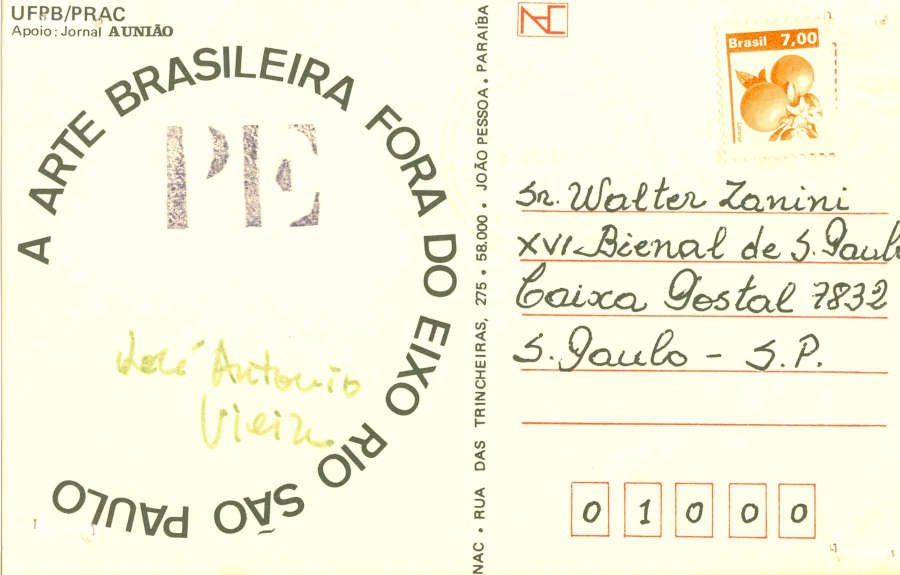 UFPB/PRAC
Apoio: Jornal A UNIÃO
A ARTE BRASILEIRA FORA DO EIXO RIO SÃO PAULO
PE
José Antonio
Vieira
NAC • RUA DAS TRINCHEIRAS, 275 • 58.000 • JOÃO PESSOA • PARAÍBA
NAC
Brasil 7,00
Sr. Walter Zanini
XVI Bienal de S. Paulo
Caixa Postal 7832
S. Paulo - S.P.
0 1 0 0 0